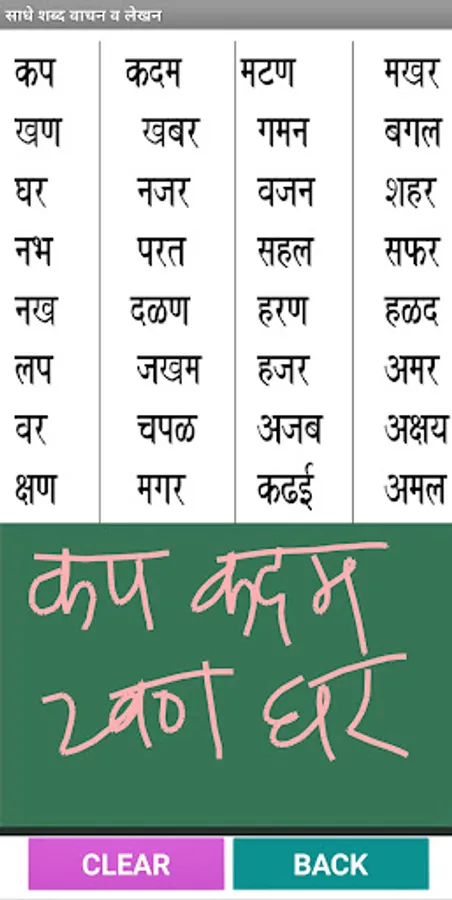 साधे शब्द वाचन व लेखन
कप कदम मटण मखर
खण खबर गमन बगल
घर नजर वजन शहर
नभ परत सहल सफर
नख दळण हरण हळद
लप जखम हजर अमर
वर चपळ अजब अक्षय
क्षण मगर कढई अमल
कप कदम
खण घर
CLEAR BACK